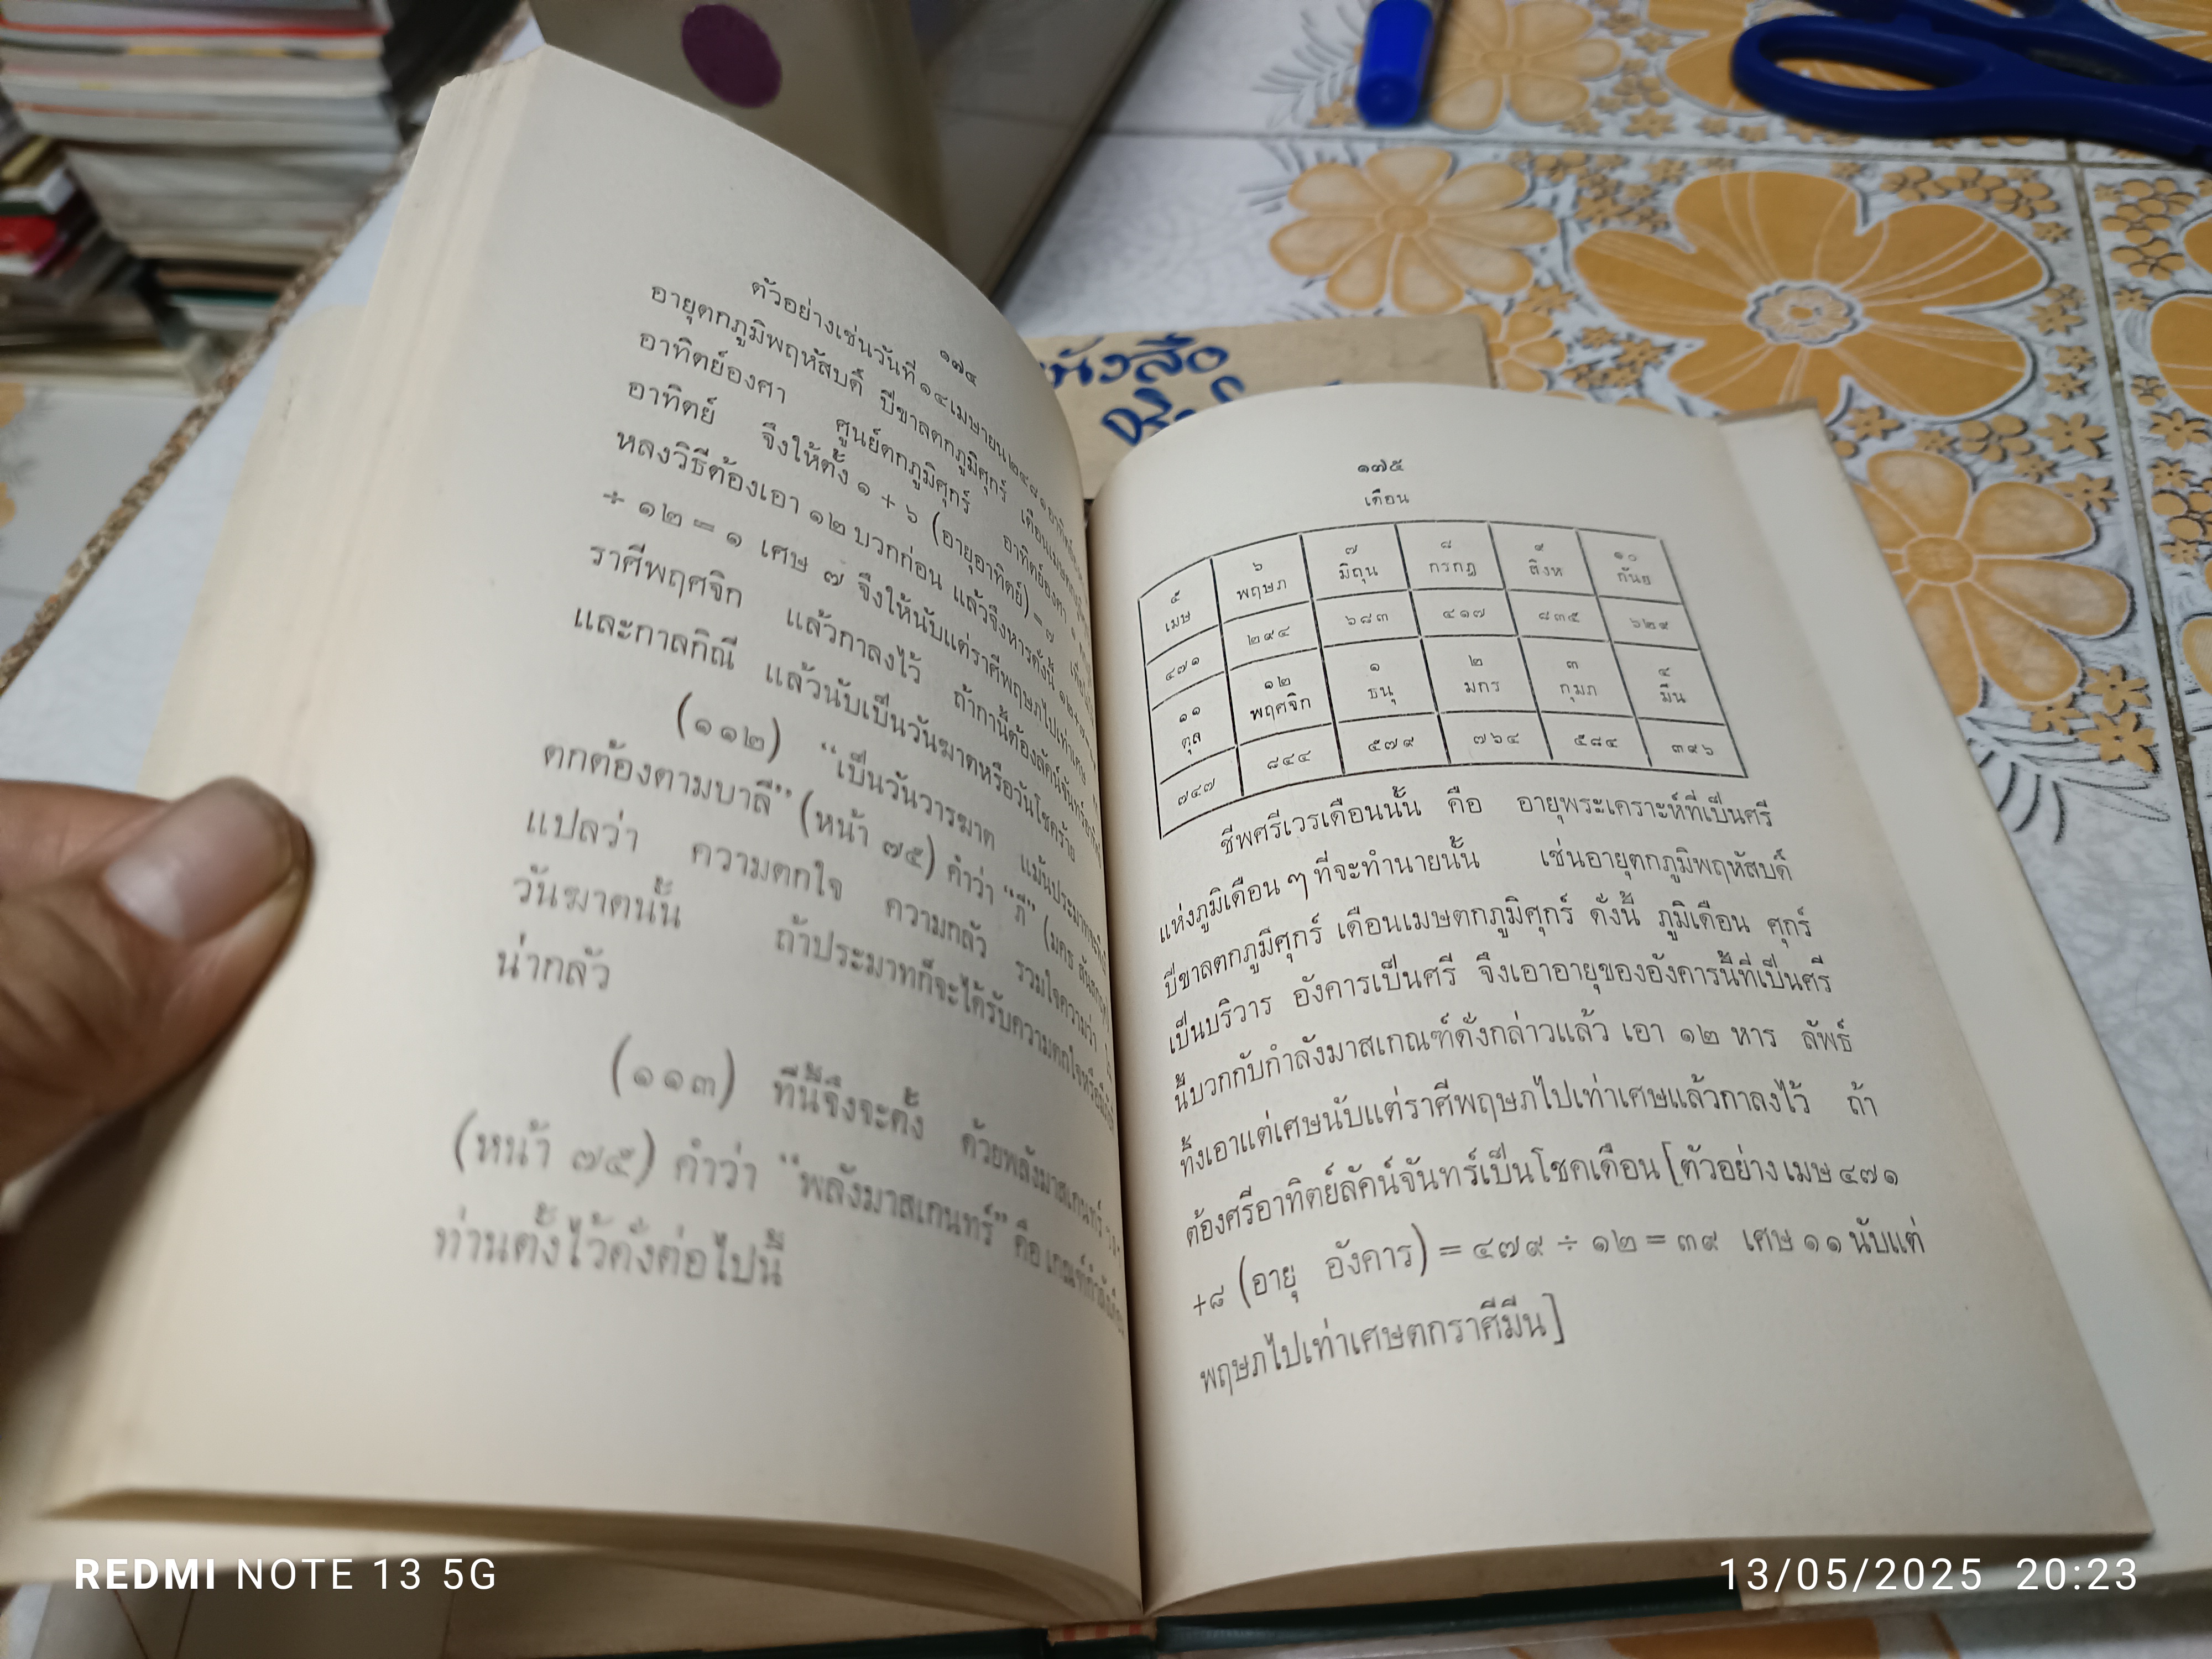 หนังสือ
๑๗๔
ตัวอย่างเช่นวันที่ ๑๔ เมษายน ๒๔๘๑
อายุตกภูมิพฤหัสบดี ปีขาลตกภูมิศุกร์ เดือนเมษ
อาทิตย์องศา ศูนย์ตกภูมิศุกร์ อาทิตย์องศา ๑
อาทิตย์ จึงให้ตั้ง ๑ + ๖ (อายุอาทิตย์) = ๗
หลงวิธีต้องเอา ๑๒ บวกก่อน แล้วจึงหารดังนี้ ๑๒+๗
÷ ๑๒ = ๑ เศษ ๗ จึงให้นับแต่ราศีพฤษภไปเท่าเศษ
ราศีพฤศจิก แล้วกาลงไว้ ถ้ากานี้ต้องลัคน์จันทร์
และกาลกิณี แล้วนับเป็นวันฆาตหรือวันโชคร้าย
(๑๑๒) “เป็นวันวารฆาต แม้นประมาท
ตกต้องตามบาลี” (หน้า ๗๕) คำว่า “ภี” (มคธ
แปลว่า ความตกใจ ความกลัว รวมใจความว่า
วันฆาตนั้น ถ้าประมาทก็จะได้รับความตกใจหรือ
น่ากลัว
(๑๑๓) ทีนี้จึงจะตั้ง ด้วยพลังมาสเกนทร์
(หน้า ๗๕) คำว่า “พลังมาสเกนทร์” คือ เกณฑ์กำลัง
ท่านตั้งไว้ดังต่อไปนี้
๑๗๕
เดือน
๕ ๖ ๗ ๘ ๙ ๑๐
เมษ พฤษภ มิถุน กรกฎ สิงห กันย
๔๗๑ ๒๙๔ ๖๘๓ ๔๑๗ ๘๓๕ ๖๒๙
๑๑ ๑๒ ๑ ๒ ๓ ๔
ตุล พฤศจิก ธนู มกร กุมภ มีน
๗๔๗ ๘๔๔ ๕๗๙ ๗๖๔ ๕๘๔ ๓๙๖
ชีพศรีเวรเดือนนั้น คือ อายุพระเคราะห์ที่เป็นศรี
แห่งภูมิเดือน ๆ ที่จะทำนายนั้น เช่นอายุตกภูมิพฤหัสบดี
ปีขาลตกภูมิศุกร์ เดือนเมษตกภูมิศุกร์ ดังนี้ ภูมิเดือน ศุกร์
เป็นบริวาร อังคารเป็นศรี จึงเอาอายุของอังคารนี้ที่เป็นศรี
นี้บวกกับกำลังมาสเกณฑ์ดังกล่าวแล้ว เอา ๑๒ หาร ลัพธ์
ทิ้งเอาแต่เศษนับแต่ราศีพฤษภไปเท่าเศษแล้วกาลงไว้ ถ้า
ต้องศรีอาทิตย์ลัคน์จันทร์เป็นโชคเดือน [ตัวอย่าง เมษ ๔๗๑
+๘ (อายุ อังคาร) = ๔๗๙ ÷ ๑๒ = ๓๙ เศษ ๑๑ นับแต่
พฤษภไปเท่าเศษตกราศีมีน]
REDMI NOTE 13 5G
13/05/2025 20:23